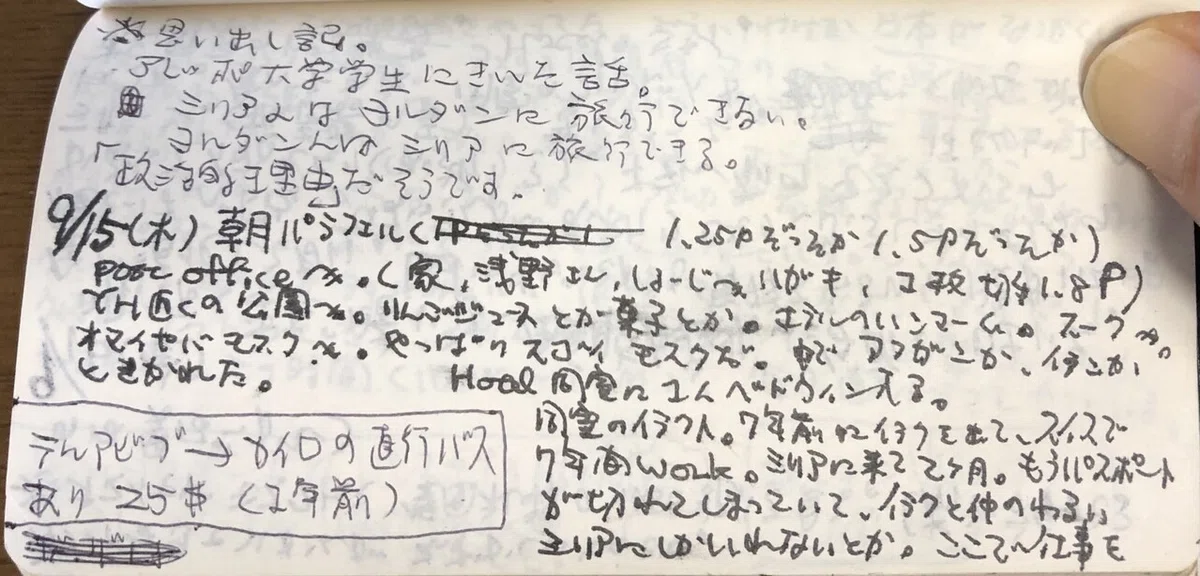 思い出し記。
アレッポ大学学生にきいた話。
シリア人はヨルダンに旅行できない。
ヨルダン人はシリアに旅行できる。
「政治的理由」だそうです。
9/15(木) 朝パラフェル( 1.25Pぞっそか 1.5Pぞっそか)
post officeへ。(家、浅野さん、しょーじへハガキ、 切手1.8P)
でH近くの公園へ。りんごジュースとか菓子とか。 スークへ。
オマイヤドモスクへ。やっぱりスゴイモスクだ。中でアフガンか、イランか
ときかれた。 Hotel同室に1人ベドウィン入る。
同室のイラク人。7年前にイラクを出て、スイスで
7年間work。シリアに来て2ヶ月。もうパスポート
が切れてしまっていて、イラクと仲のわるい
シリアにしかいれないとか。ここで仕事を
テルアビブ→カイロの直行バス
あり 25$ (1年前)